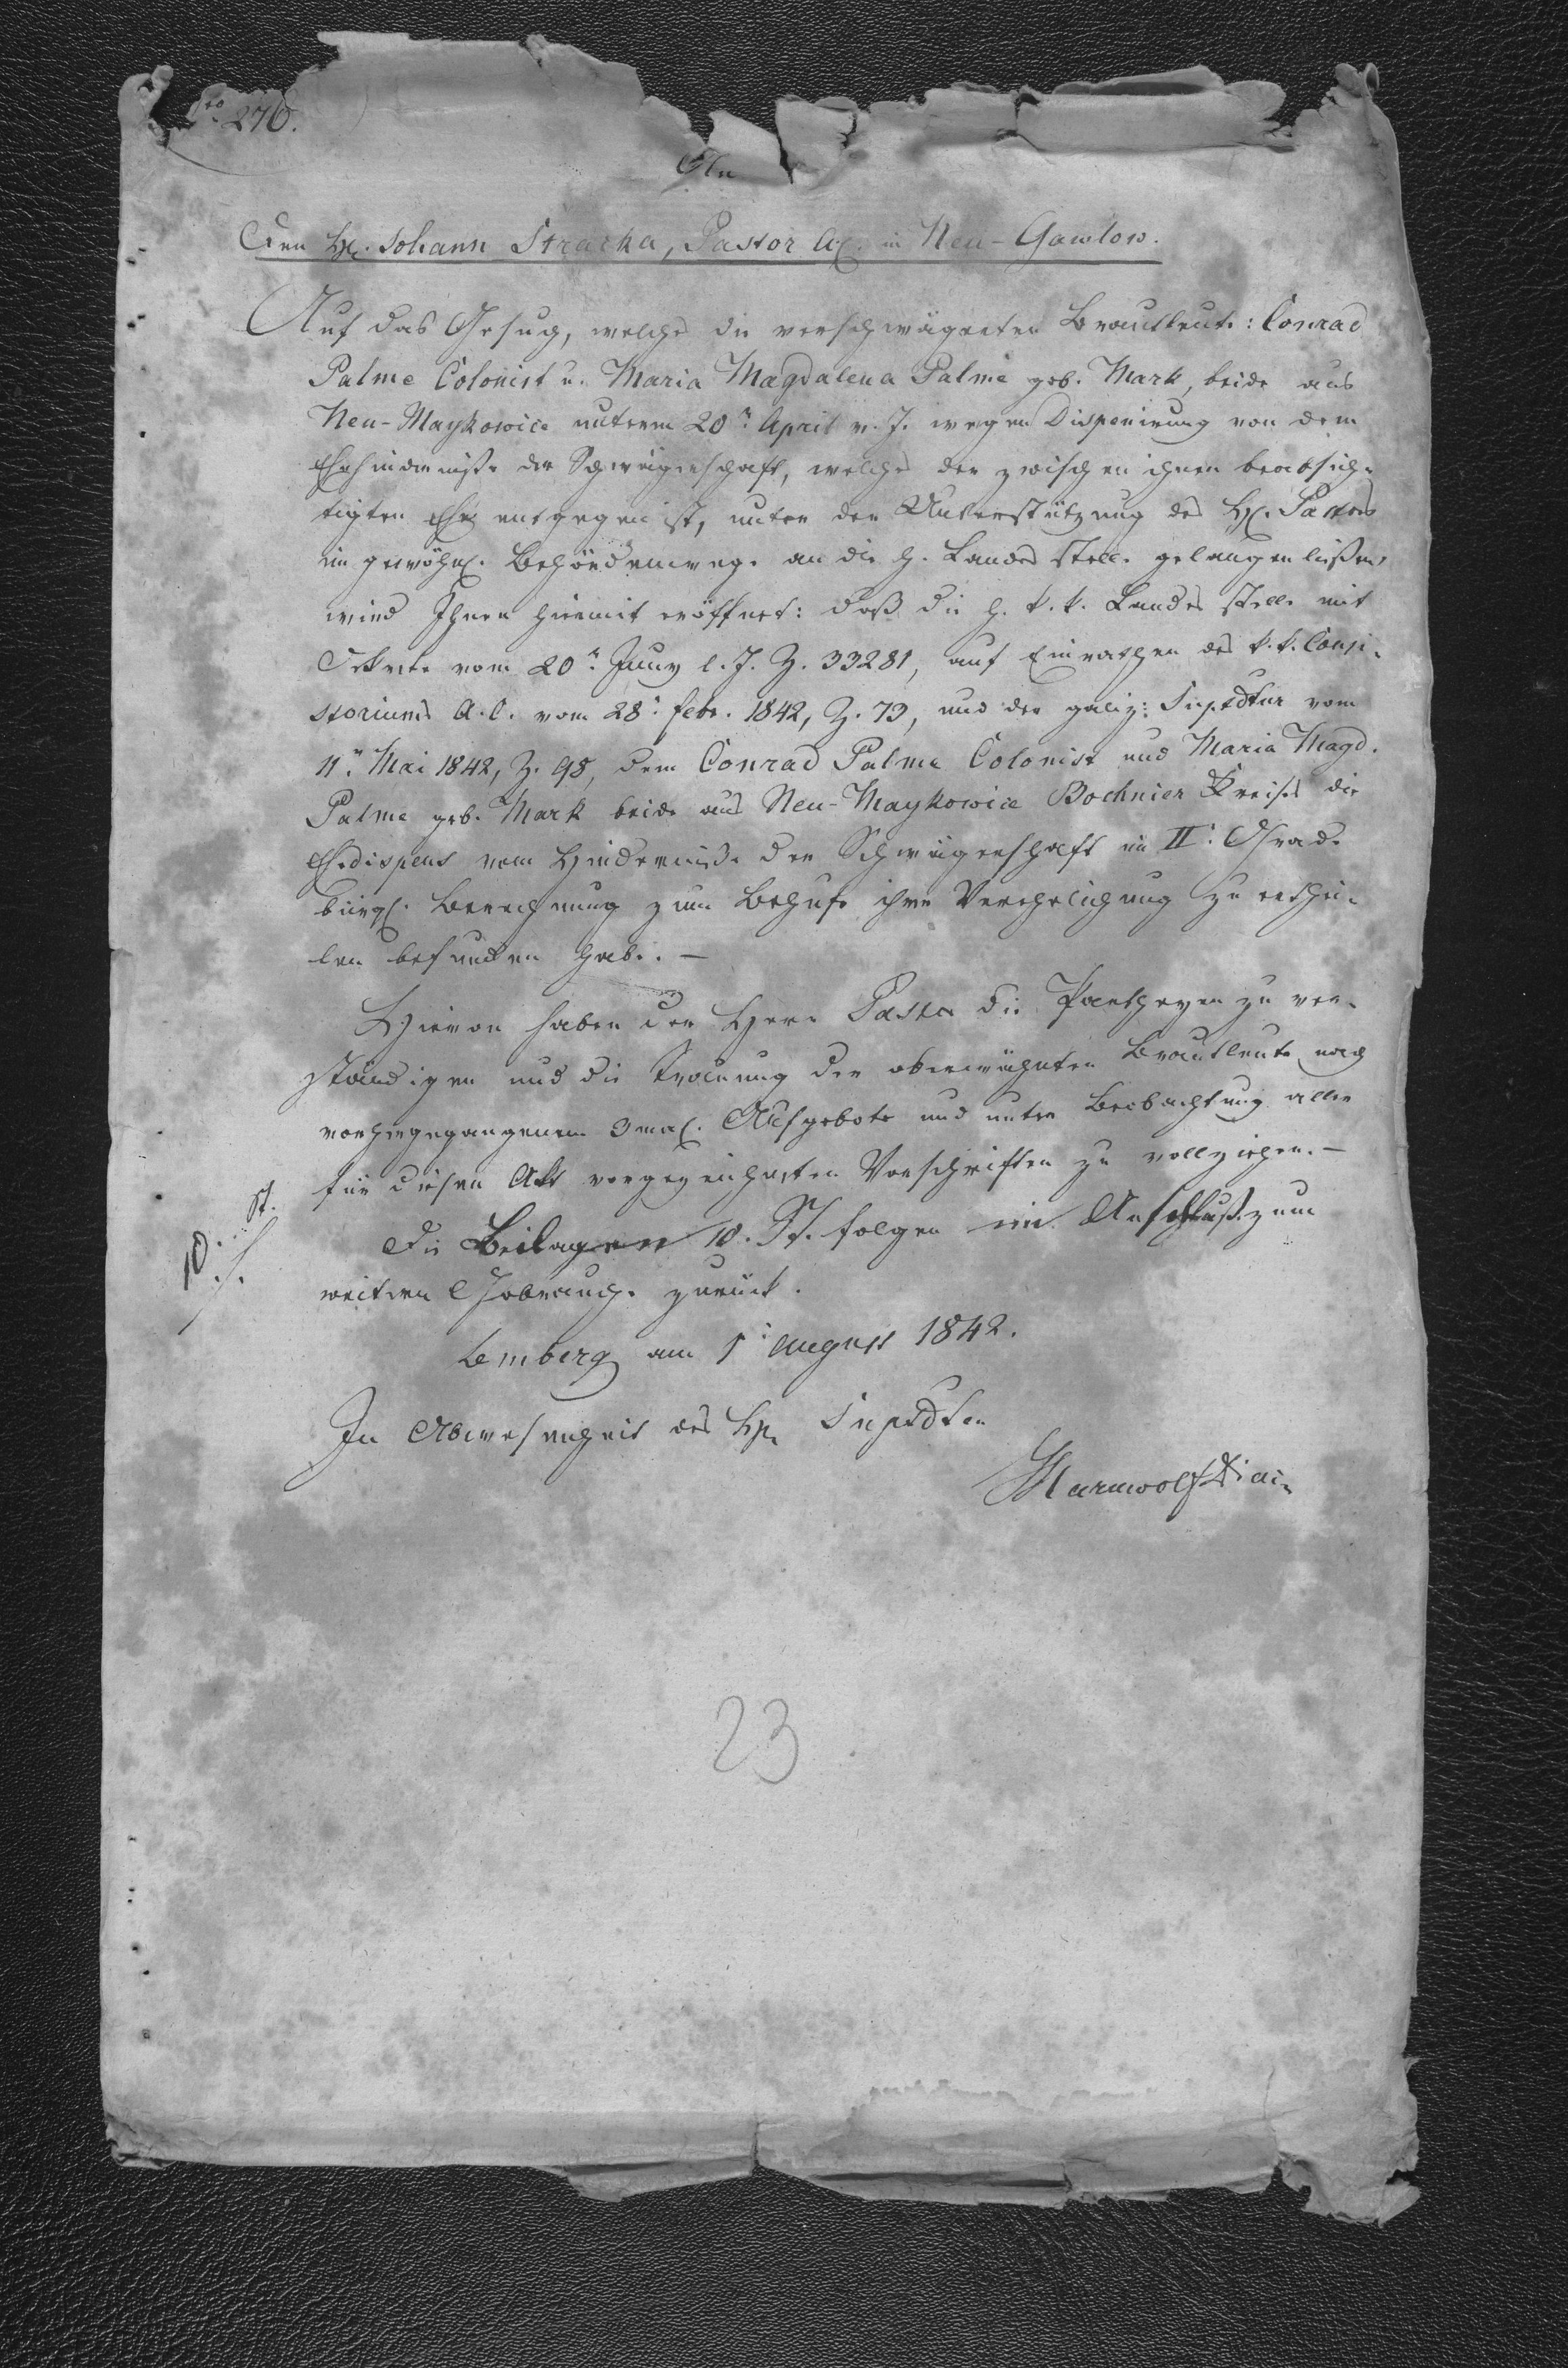 Nro 276.
An
Den H. Johann Stracka, Pastor A.C. in Neu-Gawlow.
Auf das Gesuch, welches die verschwägerten Brautleute: Conrad
Palme Colonist u. Maria Magdalena Palme geb. Mark, beide aus
Neu-Maykowice unterm 20n April v. J. wegen Dispenirung von dem
Ehehindernisse der Schwägerschaft, welches der zwischen ihnen beabsich-
tigten Ehe entgegen ist, unter der Unterstützung des H. Pastors
im gewöhnl. Behördenwege an die h. Landesstelle gelangen ließen,
wird Ihnen hiemit eröffnet: daß die h. k. k. Landesstelle mit
Dekrete vom 20n Juny l. J. Z. 33281, auf Einrathen des k. k. Consi-
storiums A. C. vom 28n Febr. 1842, Z. 73, und der galiz: Suptdtur vom
11n Mai 1842, Z. 98, dem Conrad Palme Colonist und Maria Magd.
Palme geb. Mark beide aus Neu-Maykowice Bochnier Kreises die
Ehedispens vom Hindernisse der Schwägerschaft im II. Grade
bürgl. Berechnung zum Behufe ihrer Verehelichung zu erthei-
len befunden habe. —
Hievon haben der Herr Pastor die Partheyen zu ver-
ständigen und die Trauung der oberwähnten Brautleute nach
vorhergegangenem 3mal. Aufgebote und unter Beobachtung aller
für diesen Akt vorgezeichneten Vorschriften zu vollziehen. —
10. St. ./.
Die Beilagen 10. St. folgen im Anschluße zum
weitern Gebrauche zurück.
Lemberg am 1n August 1842.
In Abwesenheit des H. Suptdten
23